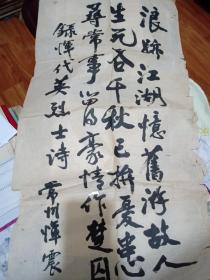 浪跡江湖憶舊游故人
生死各千秋已拚憂患
尋常事留豪情作楚囚
錄惲代英烈士詩 常州惲震